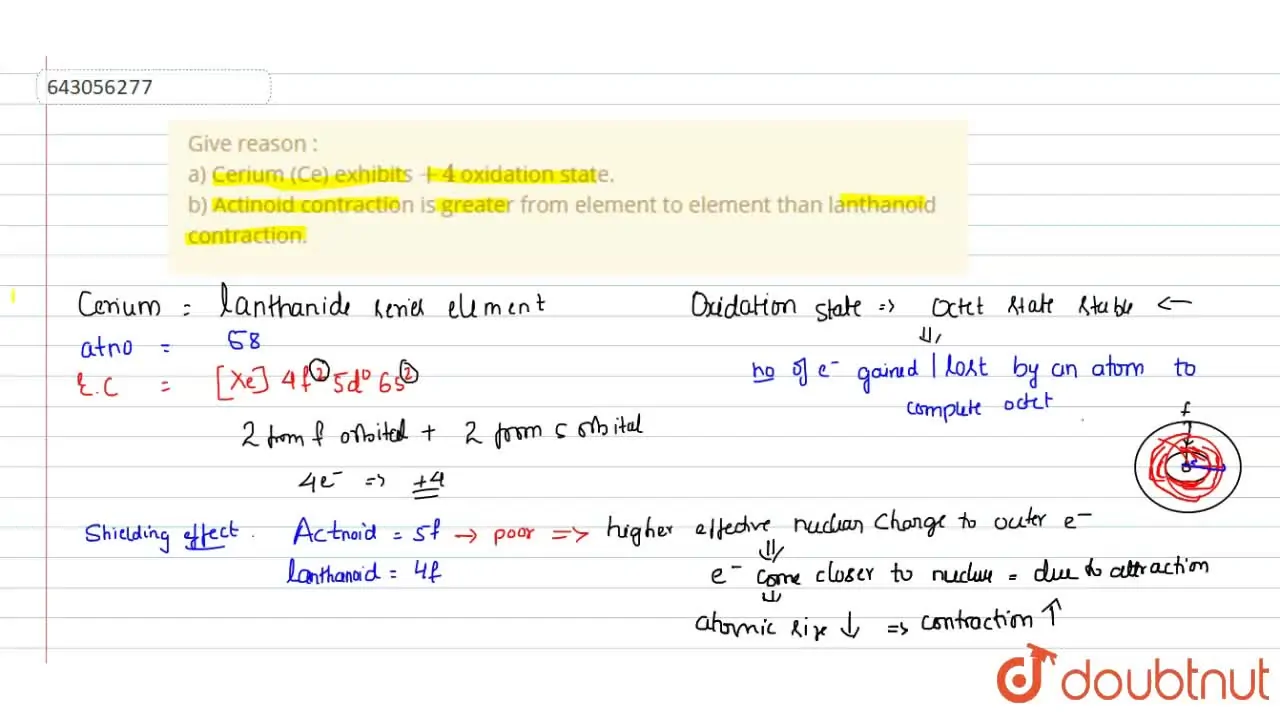 643056277
Give reason :
a) Cerium (Ce) exhibits +4 oxidation state.
b) Actinoid contraction is greater from element to element than lanthanoid
contraction.
Cerium = lanthanide series element
at no = 58
E.C = [Xe] 4f² 5d⁰ 6s²
2 from f orbital + 2 from s orbital
4e⁻ ⇒ +4
Oxidation state ⇒ Octet state stable ←
⇓
no of e⁻ gained | lost by an atom to
complete octet
f
Shielding effect . Actnoid = 5f → poor ⇒ higher effective nuclear charge to outer e⁻
lanthanoid = 4f
⇓
e⁻ come closer to nucleus = due to attraction
↓
atomic size ↓ ⇒ contraction ↑
doubtnut